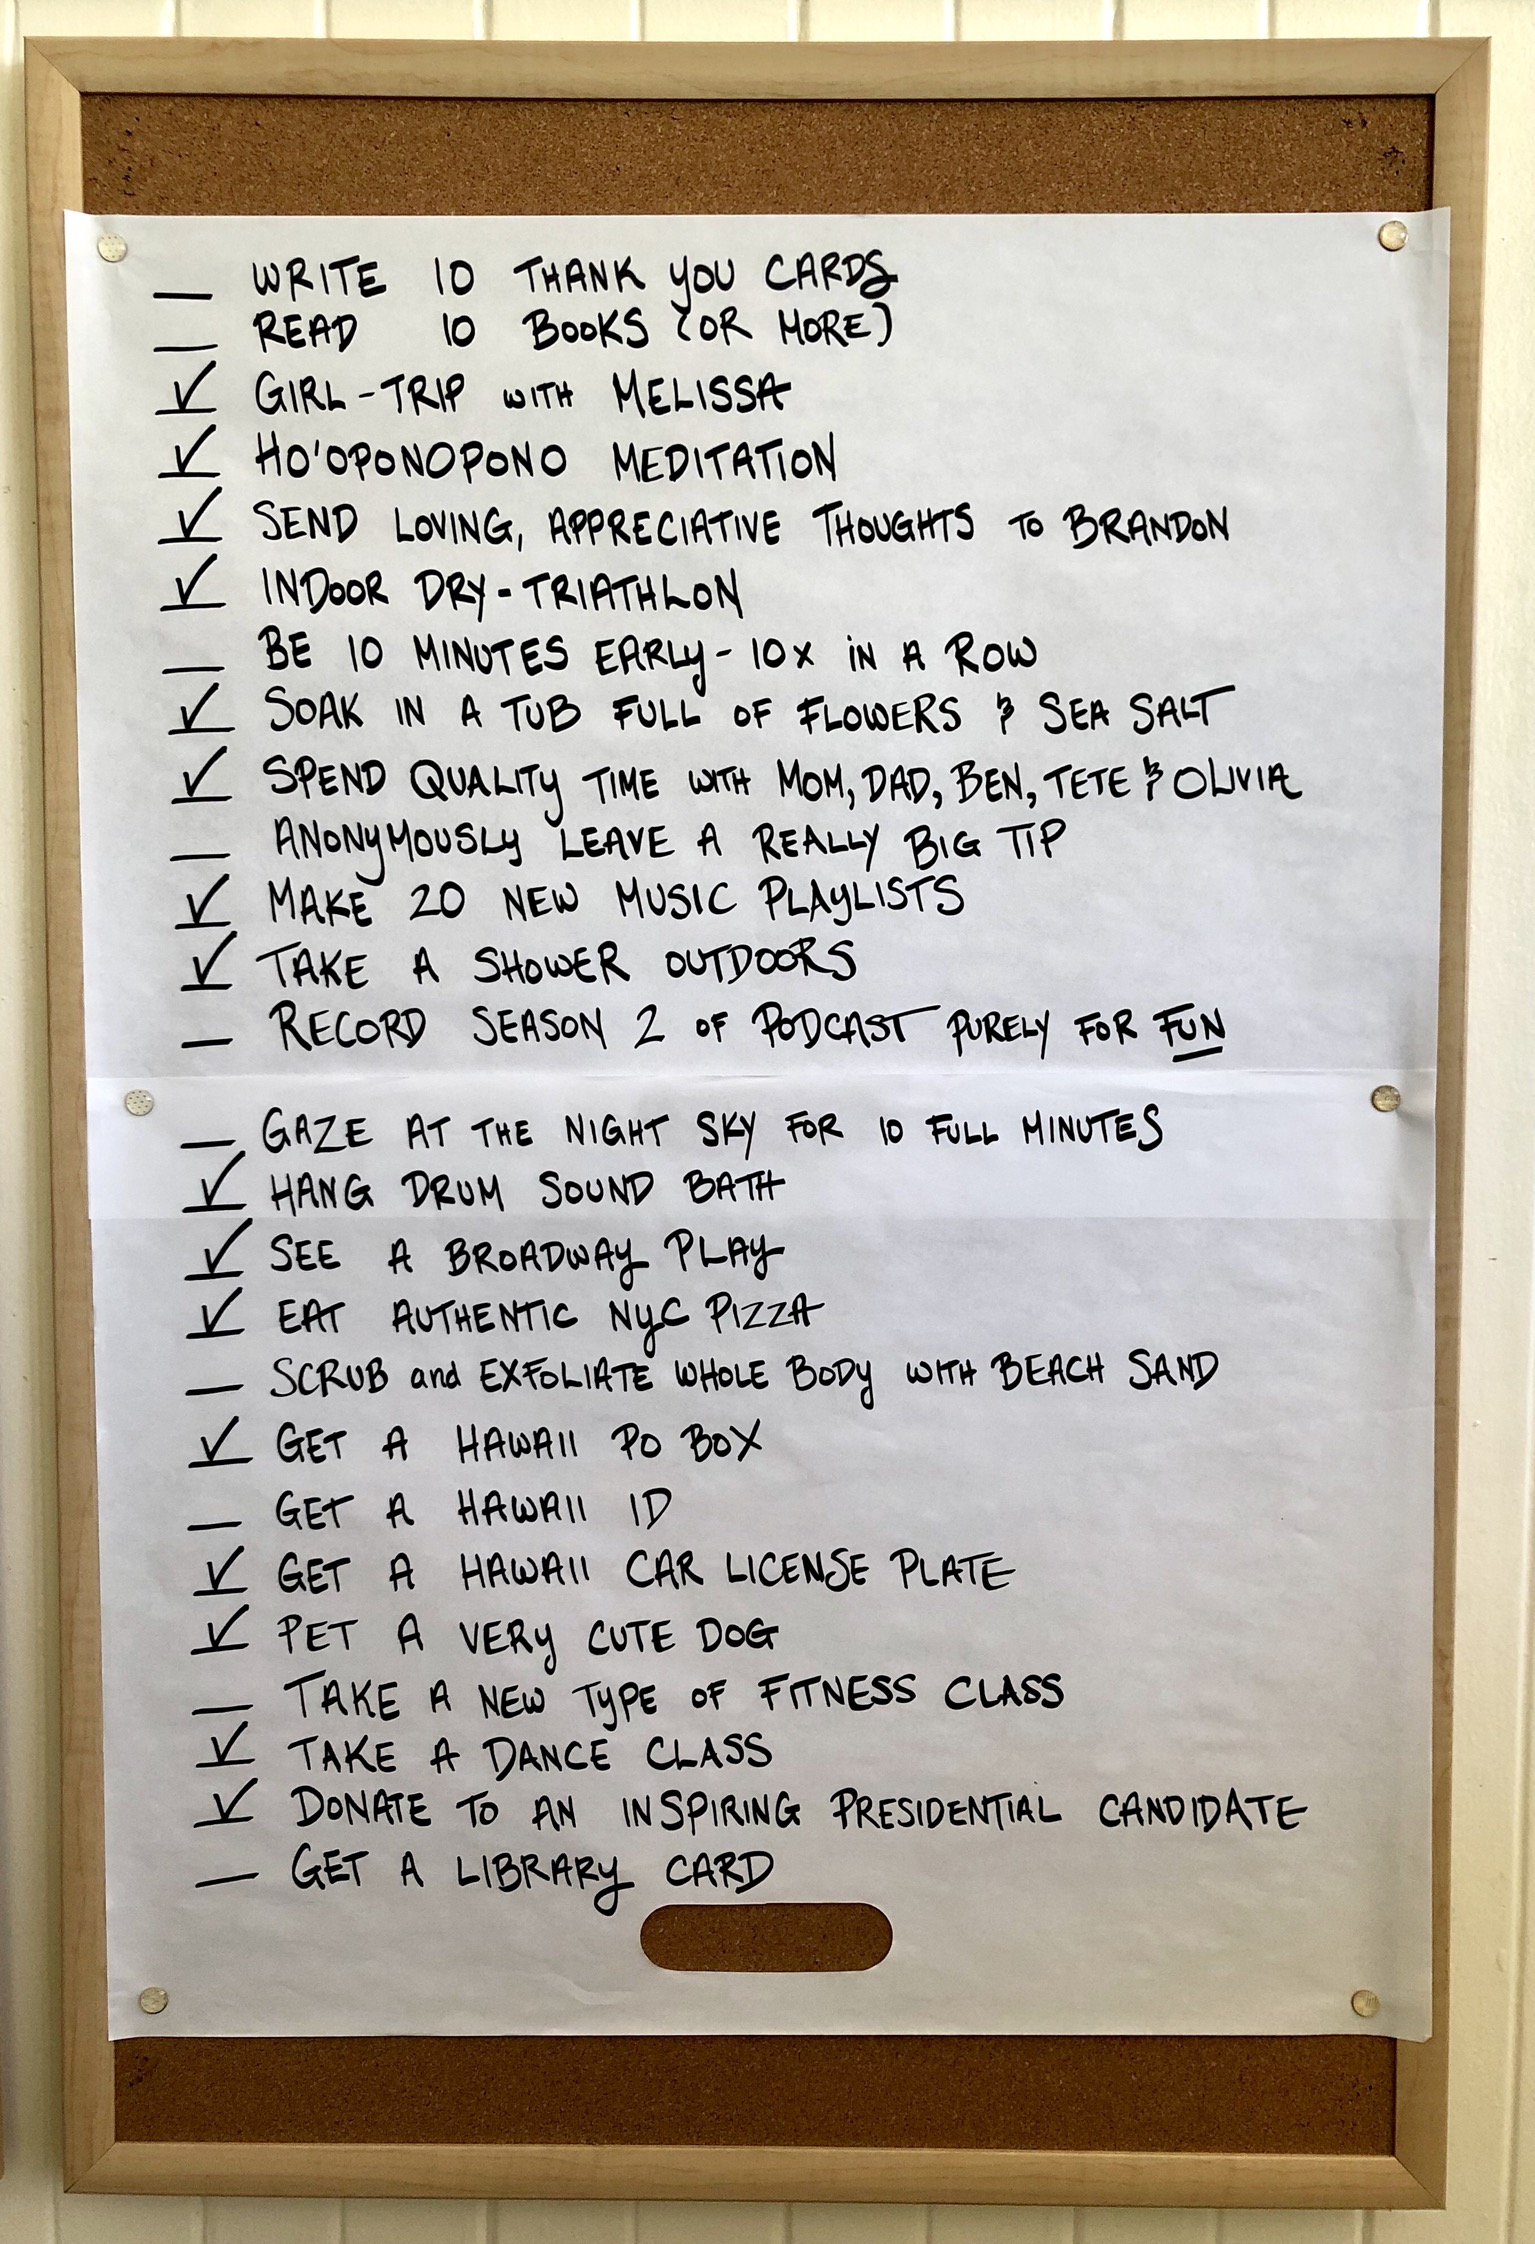 __ WRITE 10 THANK YOU CARDS
__ READ 10 BOOKS (OR MORE)
✓ GIRL-TRIP WITH MELISSA
✓ HO'OPONOPONO MEDITATION
✓ SEND LOVING, APPRECIATIVE THOUGHTS TO BRANDON
✓ INDOOR DRY-TRIATHLON
__ BE 10 MINUTES EARLY - 10x IN A ROW
✓ SOAK IN A TUB FULL OF FLOWERS & SEA SALT
✓ SPEND QUALITY TIME WITH MOM, DAD, BEN, TETE & OLIVIA
__ ANONYMOUSLY LEAVE A REALLY BIG TIP
✓ MAKE 20 NEW MUSIC PLAYLISTS
✓ TAKE A SHOWER OUTDOORS
__ RECORD SEASON 2 OF PODCAST PURELY FOR FUN
__ GAZE AT THE NIGHT SKY FOR 10 FULL MINUTES
✓ HANG DRUM SOUND BATH
✓ SEE A BROADWAY PLAY
✓ EAT AUTHENTIC NYC PIZZA
__ SCRUB and EXFOLIATE WHOLE BODY WITH BEACH SAND
✓ GET A HAWAII PO BOX
__ GET A HAWAII ID
✓ GET A HAWAII CAR LICENSE PLATE
✓ PET A VERY CUTE DOG
__ TAKE A NEW TYPE OF FITNESS CLASS
✓ TAKE A DANCE CLASS
✓ DONATE TO AN INSPIRING PRESIDENTIAL CANDIDATE
__ GET A LIBRARY CARD